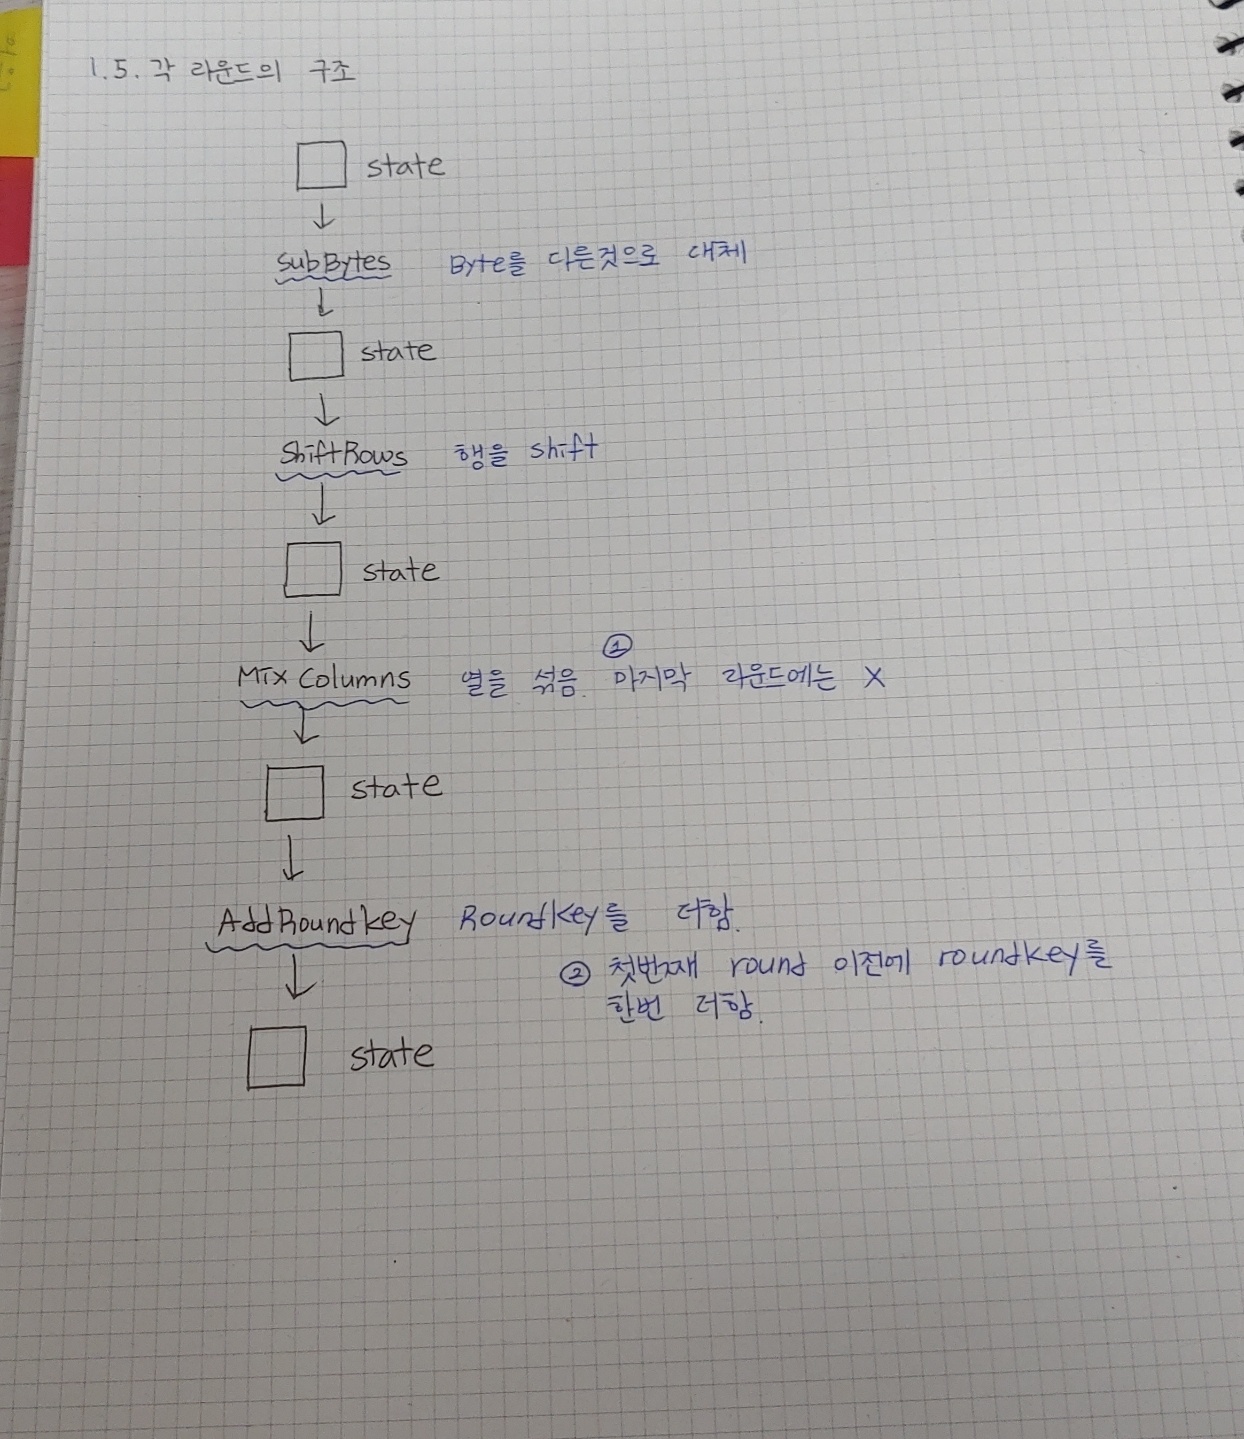 1.5. 각 라운드의 구조
state
SubBytes Byte를 다른것으로 대체
state
ShiftRows 행을 shift
state
①
MixColumns 열을 섞음. 마지막 라운드에는 X
state
AddRoundkey Roundkey를 더함.
② 첫번째 round 이전에 roundkey를
한번 더함.
state